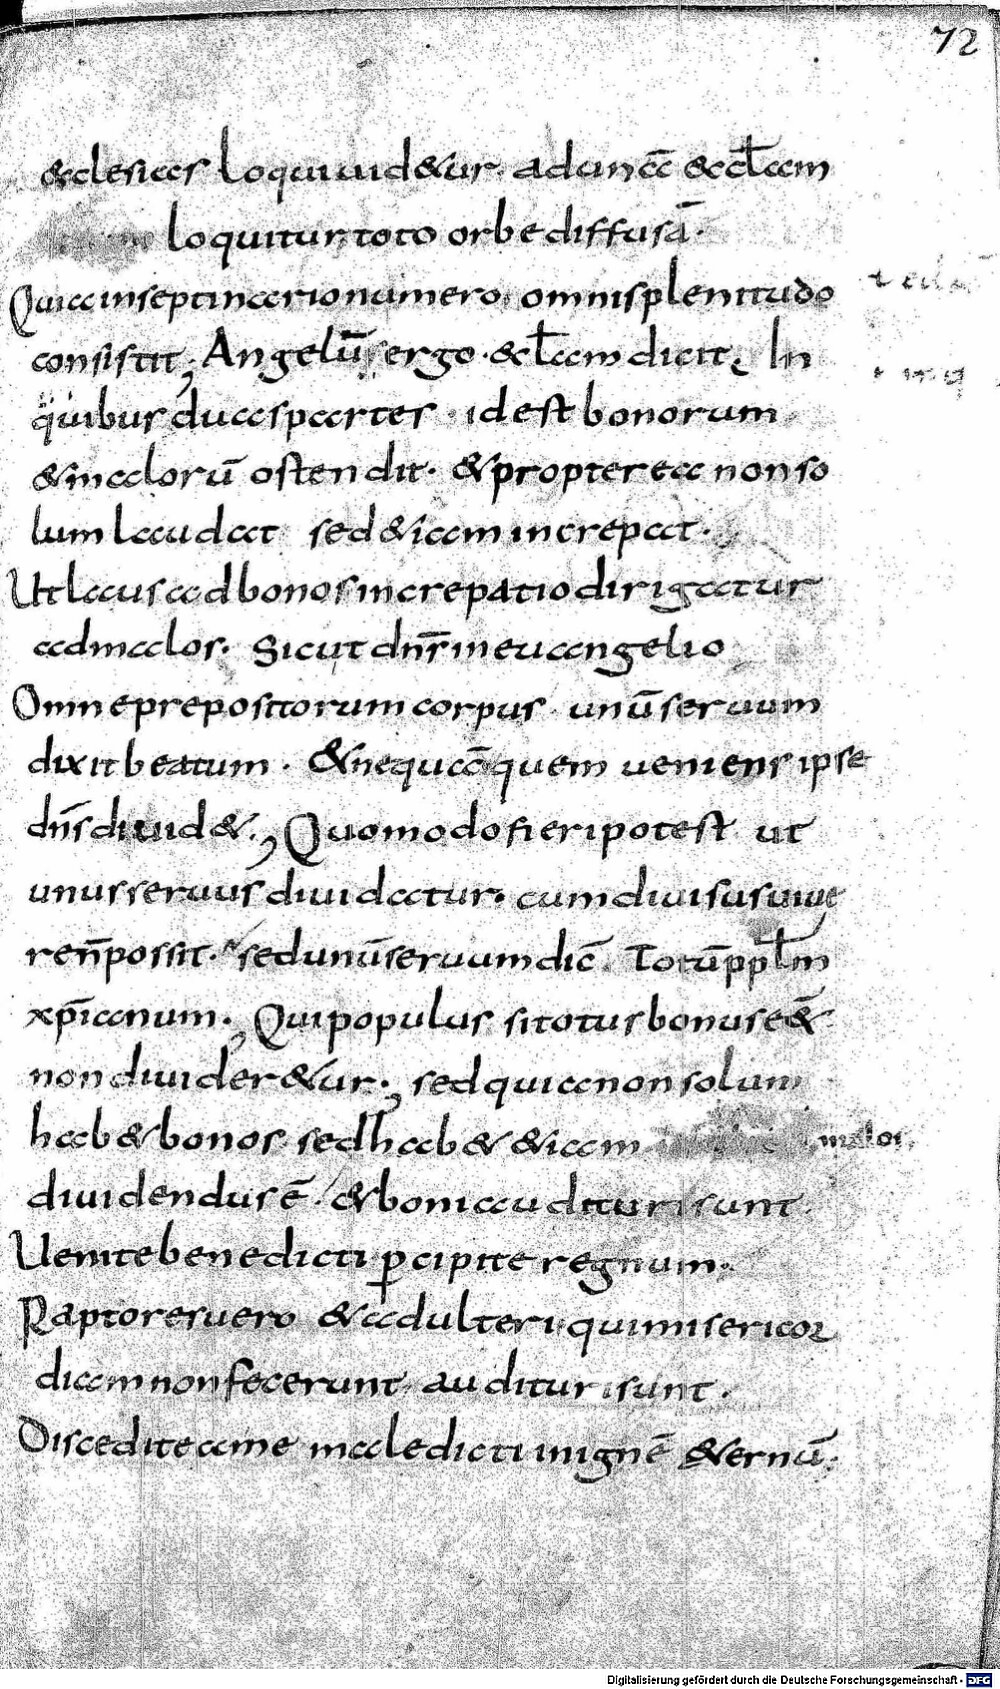 72
&clesias loquiuid&ur ad unā &ccl̄am
loquitur toto orbe diffusā.
Quia inseptinario numero omnis plenitudo
consistit; Angelū ergo · &cl̄am dicit; In
quibus duas partes · id est bonorum
& malorū ostendit · & propterea non so
lum laudat sed &iam increpat ·
Ut laus ad bonos increpatio dirigatur
ad malos · Sicut dn̄s in euangelio
Omne prepositorum corpus unū seruum
dixit beatum · & nequā quem ueniens ipse
dn̄s diuid&; Quomodo fieri potest ut
unus seruus diuidatur · cum diuisus uiue
re n̄ possit · sed unū seruum dic̄ Totū ppl̄m
xp̄ianum; Qui populus si totus bonus e&̄
non diuider&ur; sed quia non solum
hab& bonos sed hab& &iam malos
diuidendus ē · & boni audituri sunt
Uenite benedicti p̲cipite regnum ·
Raptores uero & adulteri qui misericor
diam non fecerunt audituri sunt ·
Discedite a me maledicti in ignē &ernū;
Digitalisierung gefördert durch die Deutsche Forschungsgemeinschaft - DFG